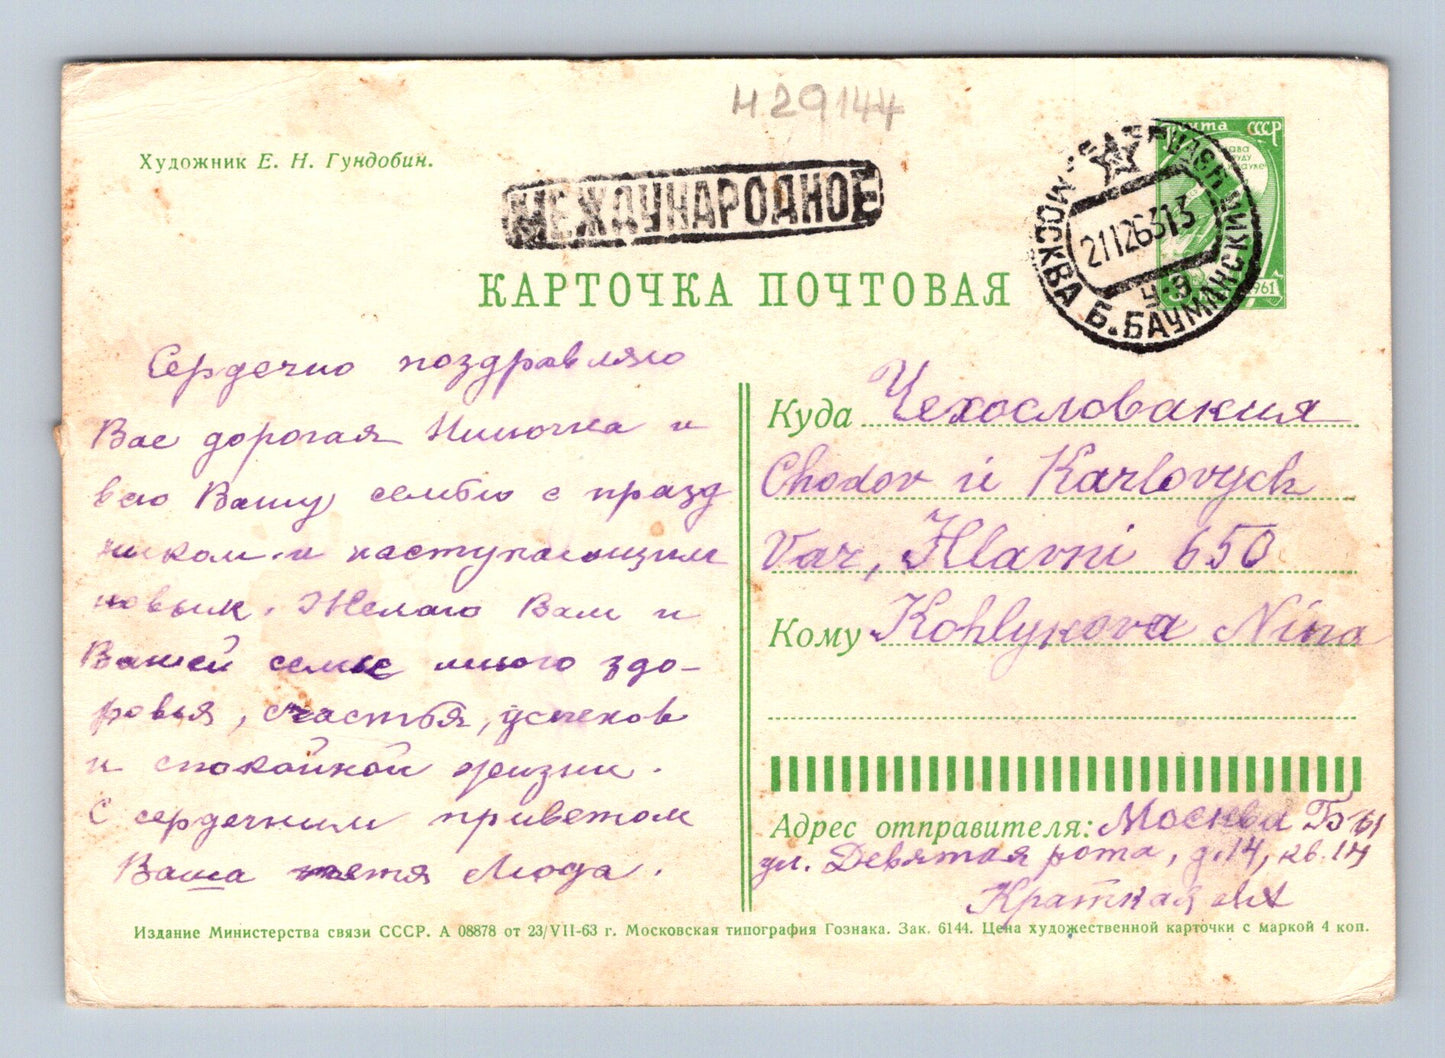 Н29144
Художник Е. Н. Гундобин.
МЕЖДУНАРОДНОЕ
почта СССР
1961
МОСКВА Б. БАУМАНСКИЙ
21126313
КАРТОЧКА ПОЧТОВАЯ
Сердечно поздравляю
Вас дорогая Ниночка и
всю Вашу семью с празд
ником и наступающим
новым. Желаю Вам и
Вашей семье много здо-
ровья, счастья, успехов
и спокойной жизни.
С сердечным приветом
Ваша тетя Люда.
Куда Чехословакия
Chodov u Karlovych
Var, Hlavni 650
Кому Kohlykova Nina
Адрес отправителя: Москва
ул. Девятая рота, д.14, кв.14
Издание Министерства связи СССР. А 08878 от 23/VII-63 г. Московская типография Гознака. Зак. 6144. Цена художественной карточки с маркой 4 коп.